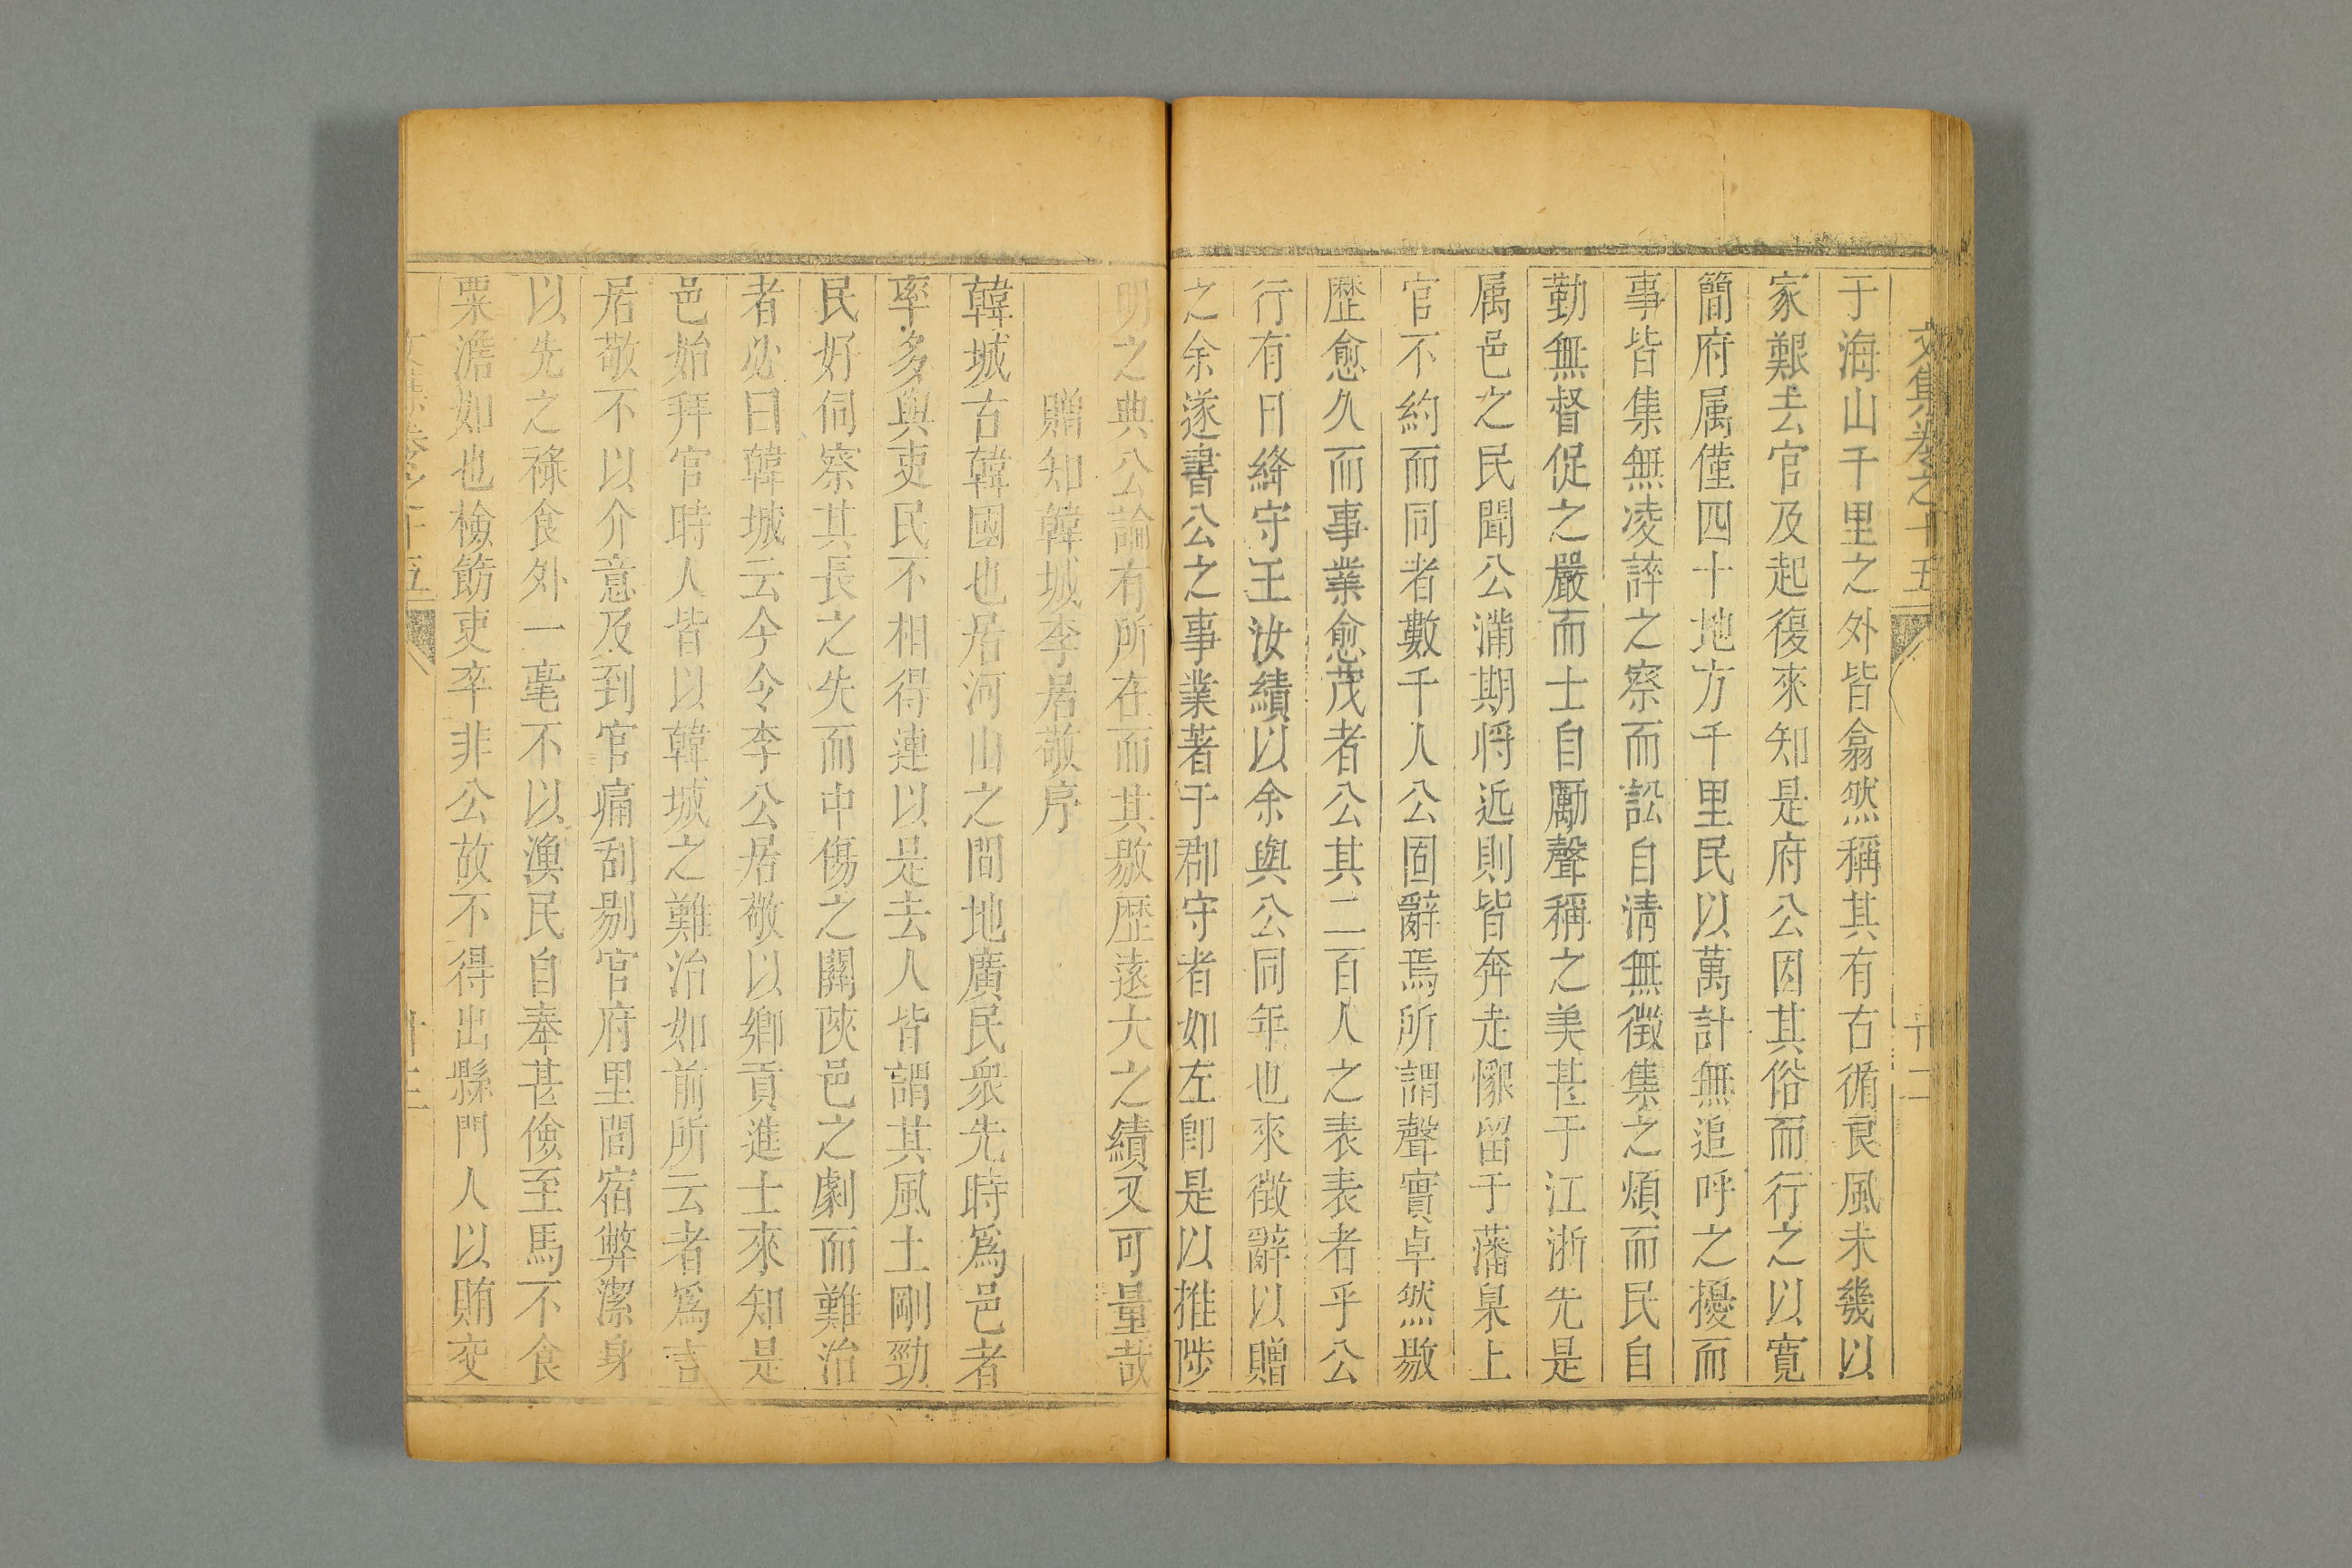 文集卷之十五
廿二
于海山千里之外皆翕然稱其有古循良風未幾以
家艱去官及起復來知是府公因其俗而行之以寬
簡府属僅四十地方千里民以萬計無追呼之擾而
事皆集無凌誶之察而訟自清無徵集之煩而民自
勤無督促之嚴而士自勵聲稱之美甚于江浙先是
属邑之民聞公滿期將近則皆奔走懇留于藩臬上
官不約而同者數千人公固辭焉所謂聲實卓然敭
歷愈久而事業愈茂者公其二百人之表表者乎公
行有日絳守王汝績以余與公同年也來徵辭以贈
之余遂書公之事業著于郡守者如左卽是以推陟
明之典公論有所在而其敭歷遠大之績又可量哉
贈知韓城李居敬序
韓城古韓國也居河山之間地廣民衆先時爲邑者
率多與吏民不相得連以是去人皆謂其風土剛勁
民好伺察其長之失而中傷之關陝邑之劇而難治
者必曰韓城云今令李公居敬以鄉貢進士來知是
邑始拜官時人皆以韓城之難治如前所云者爲言
居敬不以介意及到官痛刮剔官府里閭宿弊潔身
以先之祿食外一毫不以漁民自奉甚儉至馬不食
粟澹如也檢飭吏卒非公故不得出縣門人以賄交
文集卷之十五
廿三